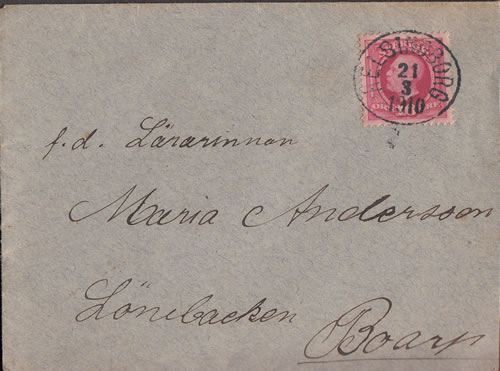 HELSINGBORG
21
3
1910
f.d. Lärarinnan
Maria Andersson
Lönebacken
Boarp